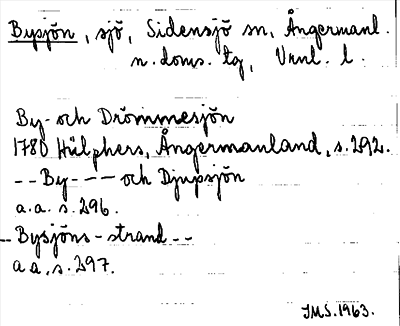 Bysjön, sjö, Sidensjö sn, Ångermanl.
n. doms. tg, Vnnl. l.
By- och Drömmesjön
1780 Hülphers, Ångermanland, s. 292.
-- By- --- och Djupsjön
a.a. s. 296.
-- Bysjöns-strand --
a a, s. 297.
IMS. 1963.